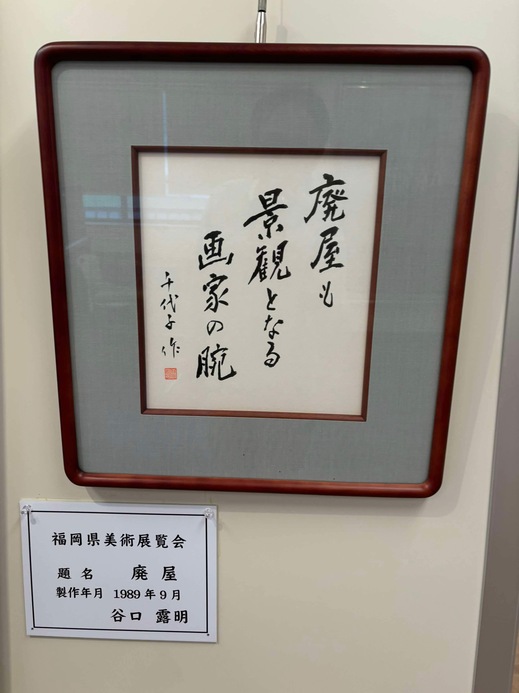 廃屋も
景観となる
画家の腕
千代子作
福岡県美術展覧会
題名 廃屋
製作年月 1989年9月
谷口 露明